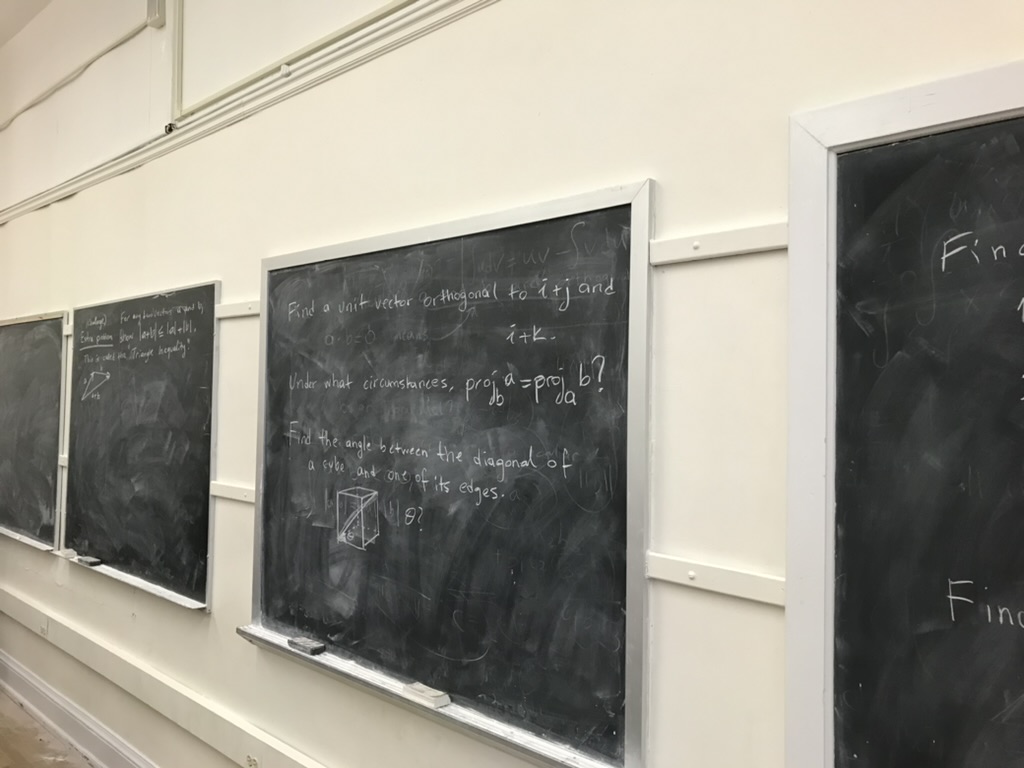 Extra problem
show |a+b| ≤ |a|+|b|.
This is called the "triangle inequality"
a+b
Find a unit vector orthogonal to i+j and
i+k.
Under what circumstances, proj_b a = proj_a b?
Find the angle between the diagonal of
a cube and one of its edges.
θ?
Find
Find